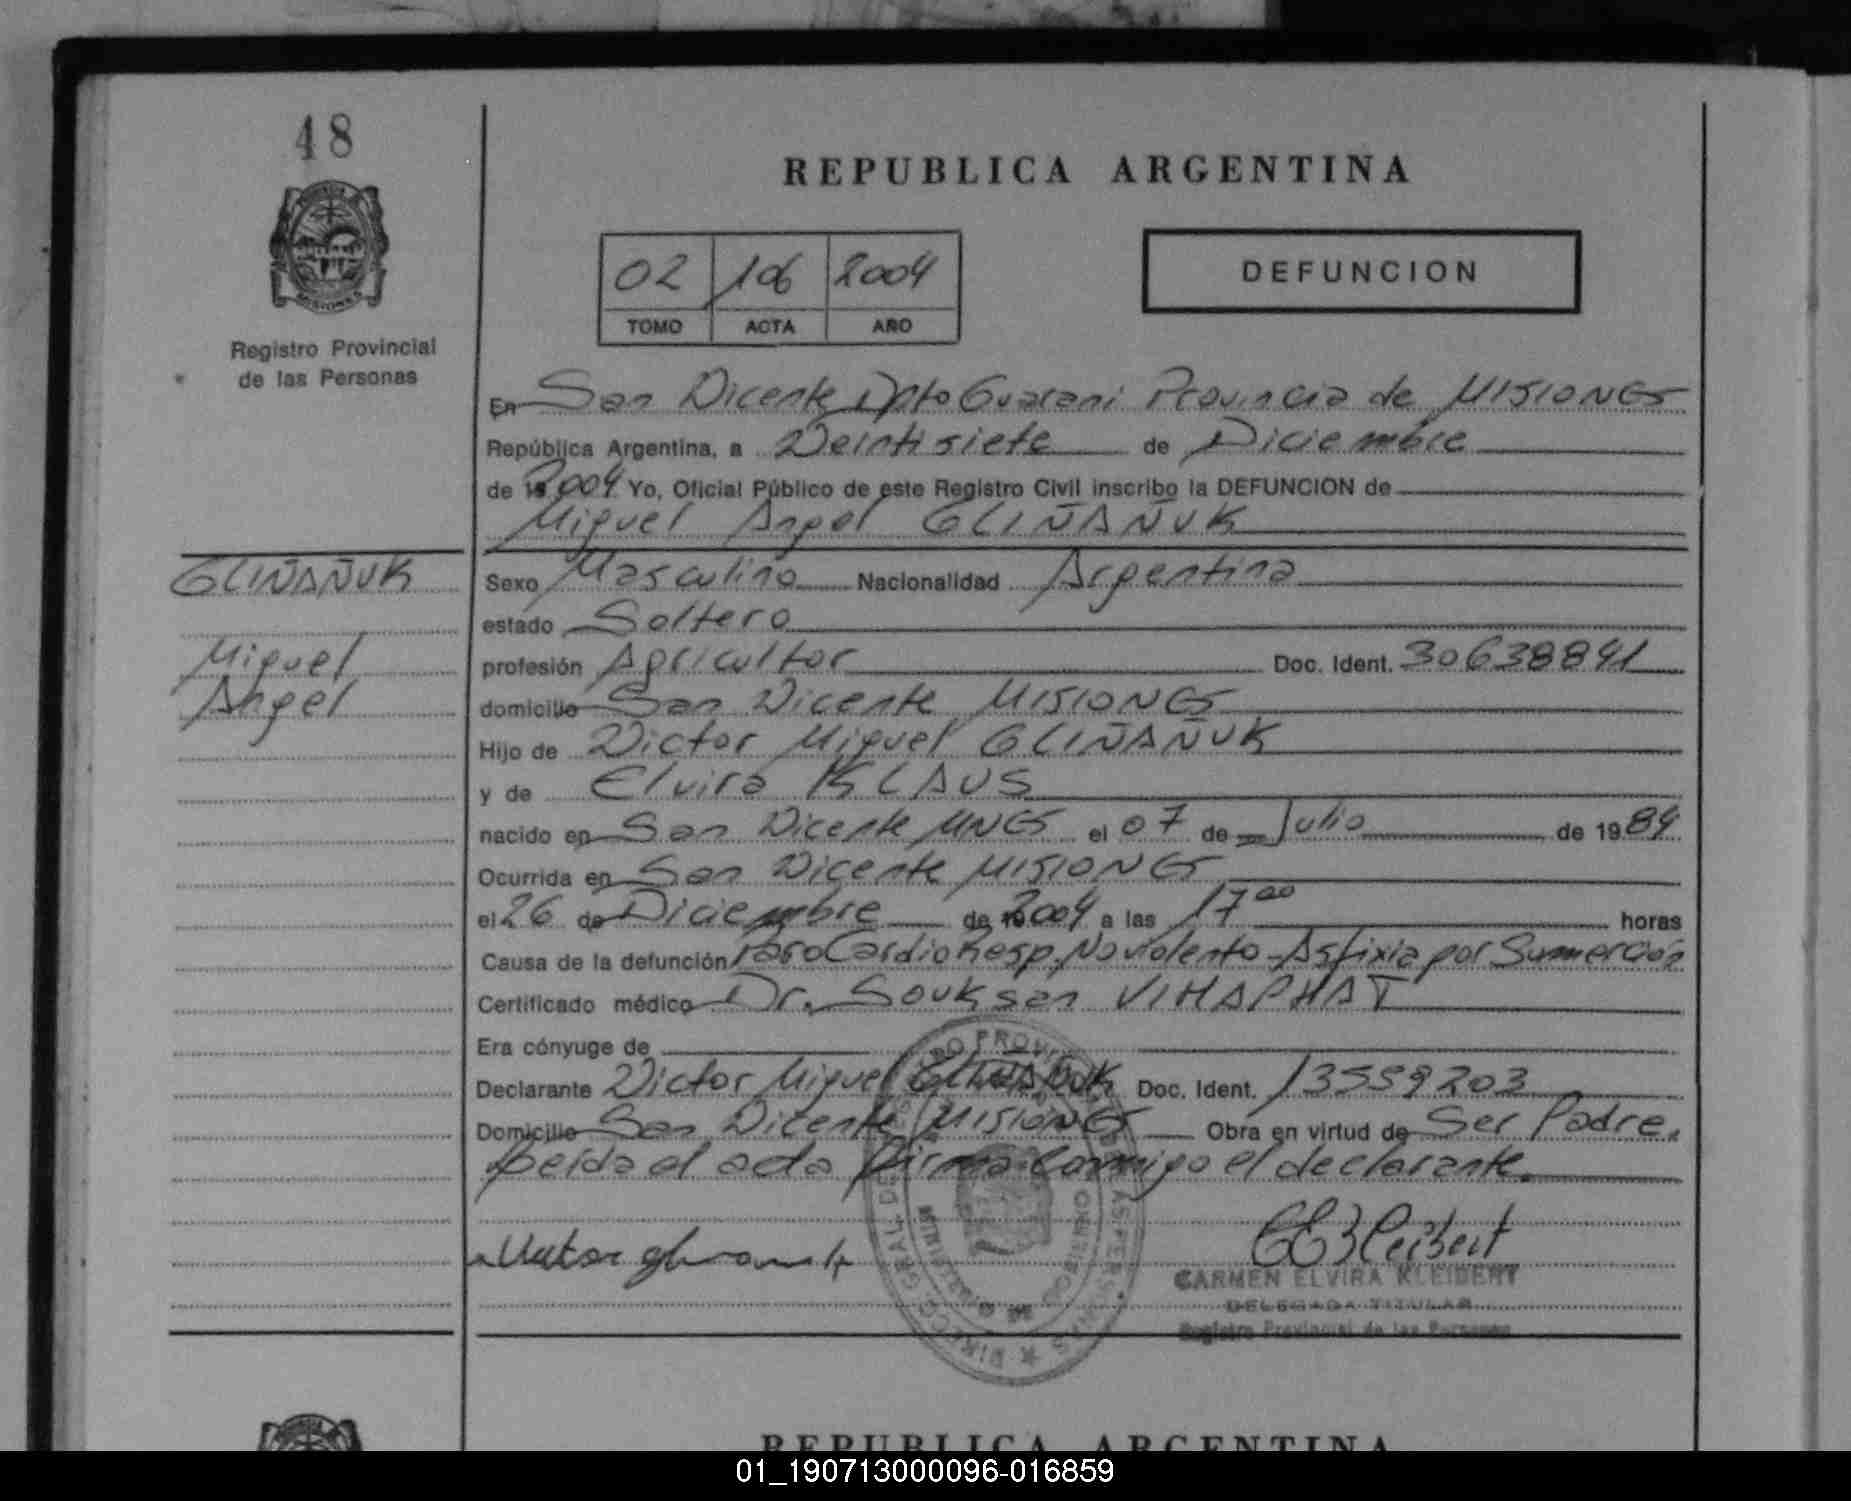 48
REPUBLICA ARGENTINA
02 106 2004
TOMO ACTA AÑO
DEFUNCION
Registro Provincial
de las Personas
MISIONES
En San Vicente Dpto Guarani Provincia de MISIONES
República Argentina, a Veintisiete de Diciembre
de 2004 Yo, Oficial Público de este Registro Civil inscribo la DEFUNCION de
Miguel Angel GLIÑAÑUK
GLIÑAÑUK
Miguel
Angel
Sexo Masculino Nacionalidad Argentina
estado Soltero
profesión Agricultor Doc. Ident. 30638841
domicilio San Vicente MISIONES
Hijo de Victor Miguel GLIÑAÑUK
y de Elvira KLAUS
nacido en San Vicente MNES el 07 de Julio de 1984
Ocurrida en San Vicente MISIONES
el 26 de Diciembre de 2004 a las 17 00 horas
Causa de la defunción Paro Cardio Resp. No violento - Asfixia por Sumerción
Certificado médico Dr. Souksan VIHAPHAT
Era cónyuge de
Declarante Victor Miguel GLIÑAÑUK Doc. Ident. 13559203
Domicilio San Vicente MISIONES Obra en virtud de Ser Padre.
Leida el acta firma conmigo el declarante.
CARMEN ELVIRA KLEIBERT
DELEGADA TITULAR
Registro Provincial de las Personas
REPUBLICA ARGENTINA
01_190713000096-016859